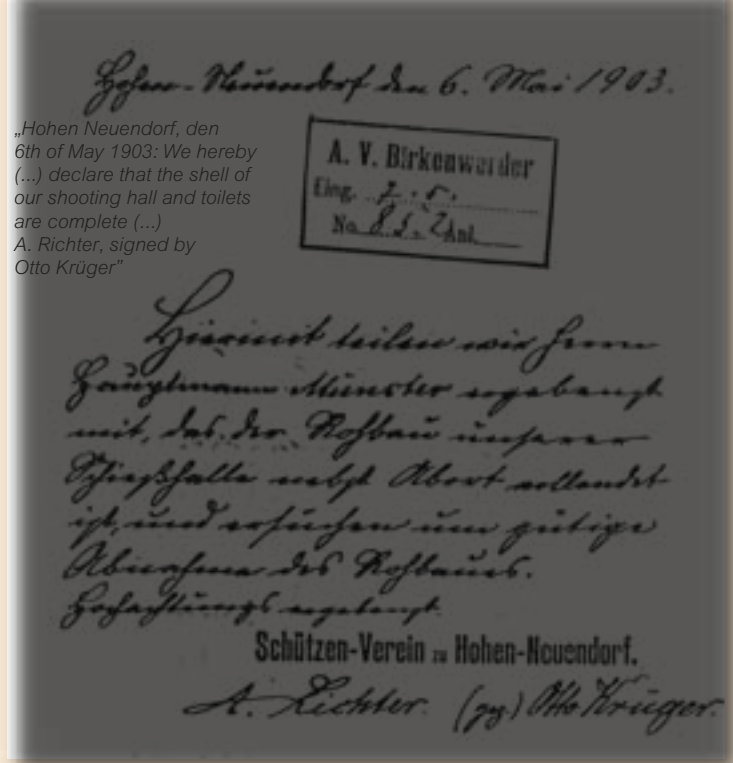 Hohen-Neuendorf den 6. Mai 1903.
„Hohen Neuendorf, den
6th of May 1903: We hereby
(...) declare that the shell of
our shooting hall and toilets
are complete (...)
A. Richter, signed by
Otto Krüger”
A. V. Birkenwerder
Eing. 7. 5.
No 852 Anl.
Hiermit teilen wir Herrn
Hauptmann Münster ergebenst
mit, das der Rohbau unserer
Schießhalle nebst Abort vollendet
ist, und ersuchen um gütige
Abnahme des Rohbaues.
Hochachtungs ergebenst
Schützen-Verein zu Hohen-Neuendorf.
A. Richter. (gez.) Otto Krüger.